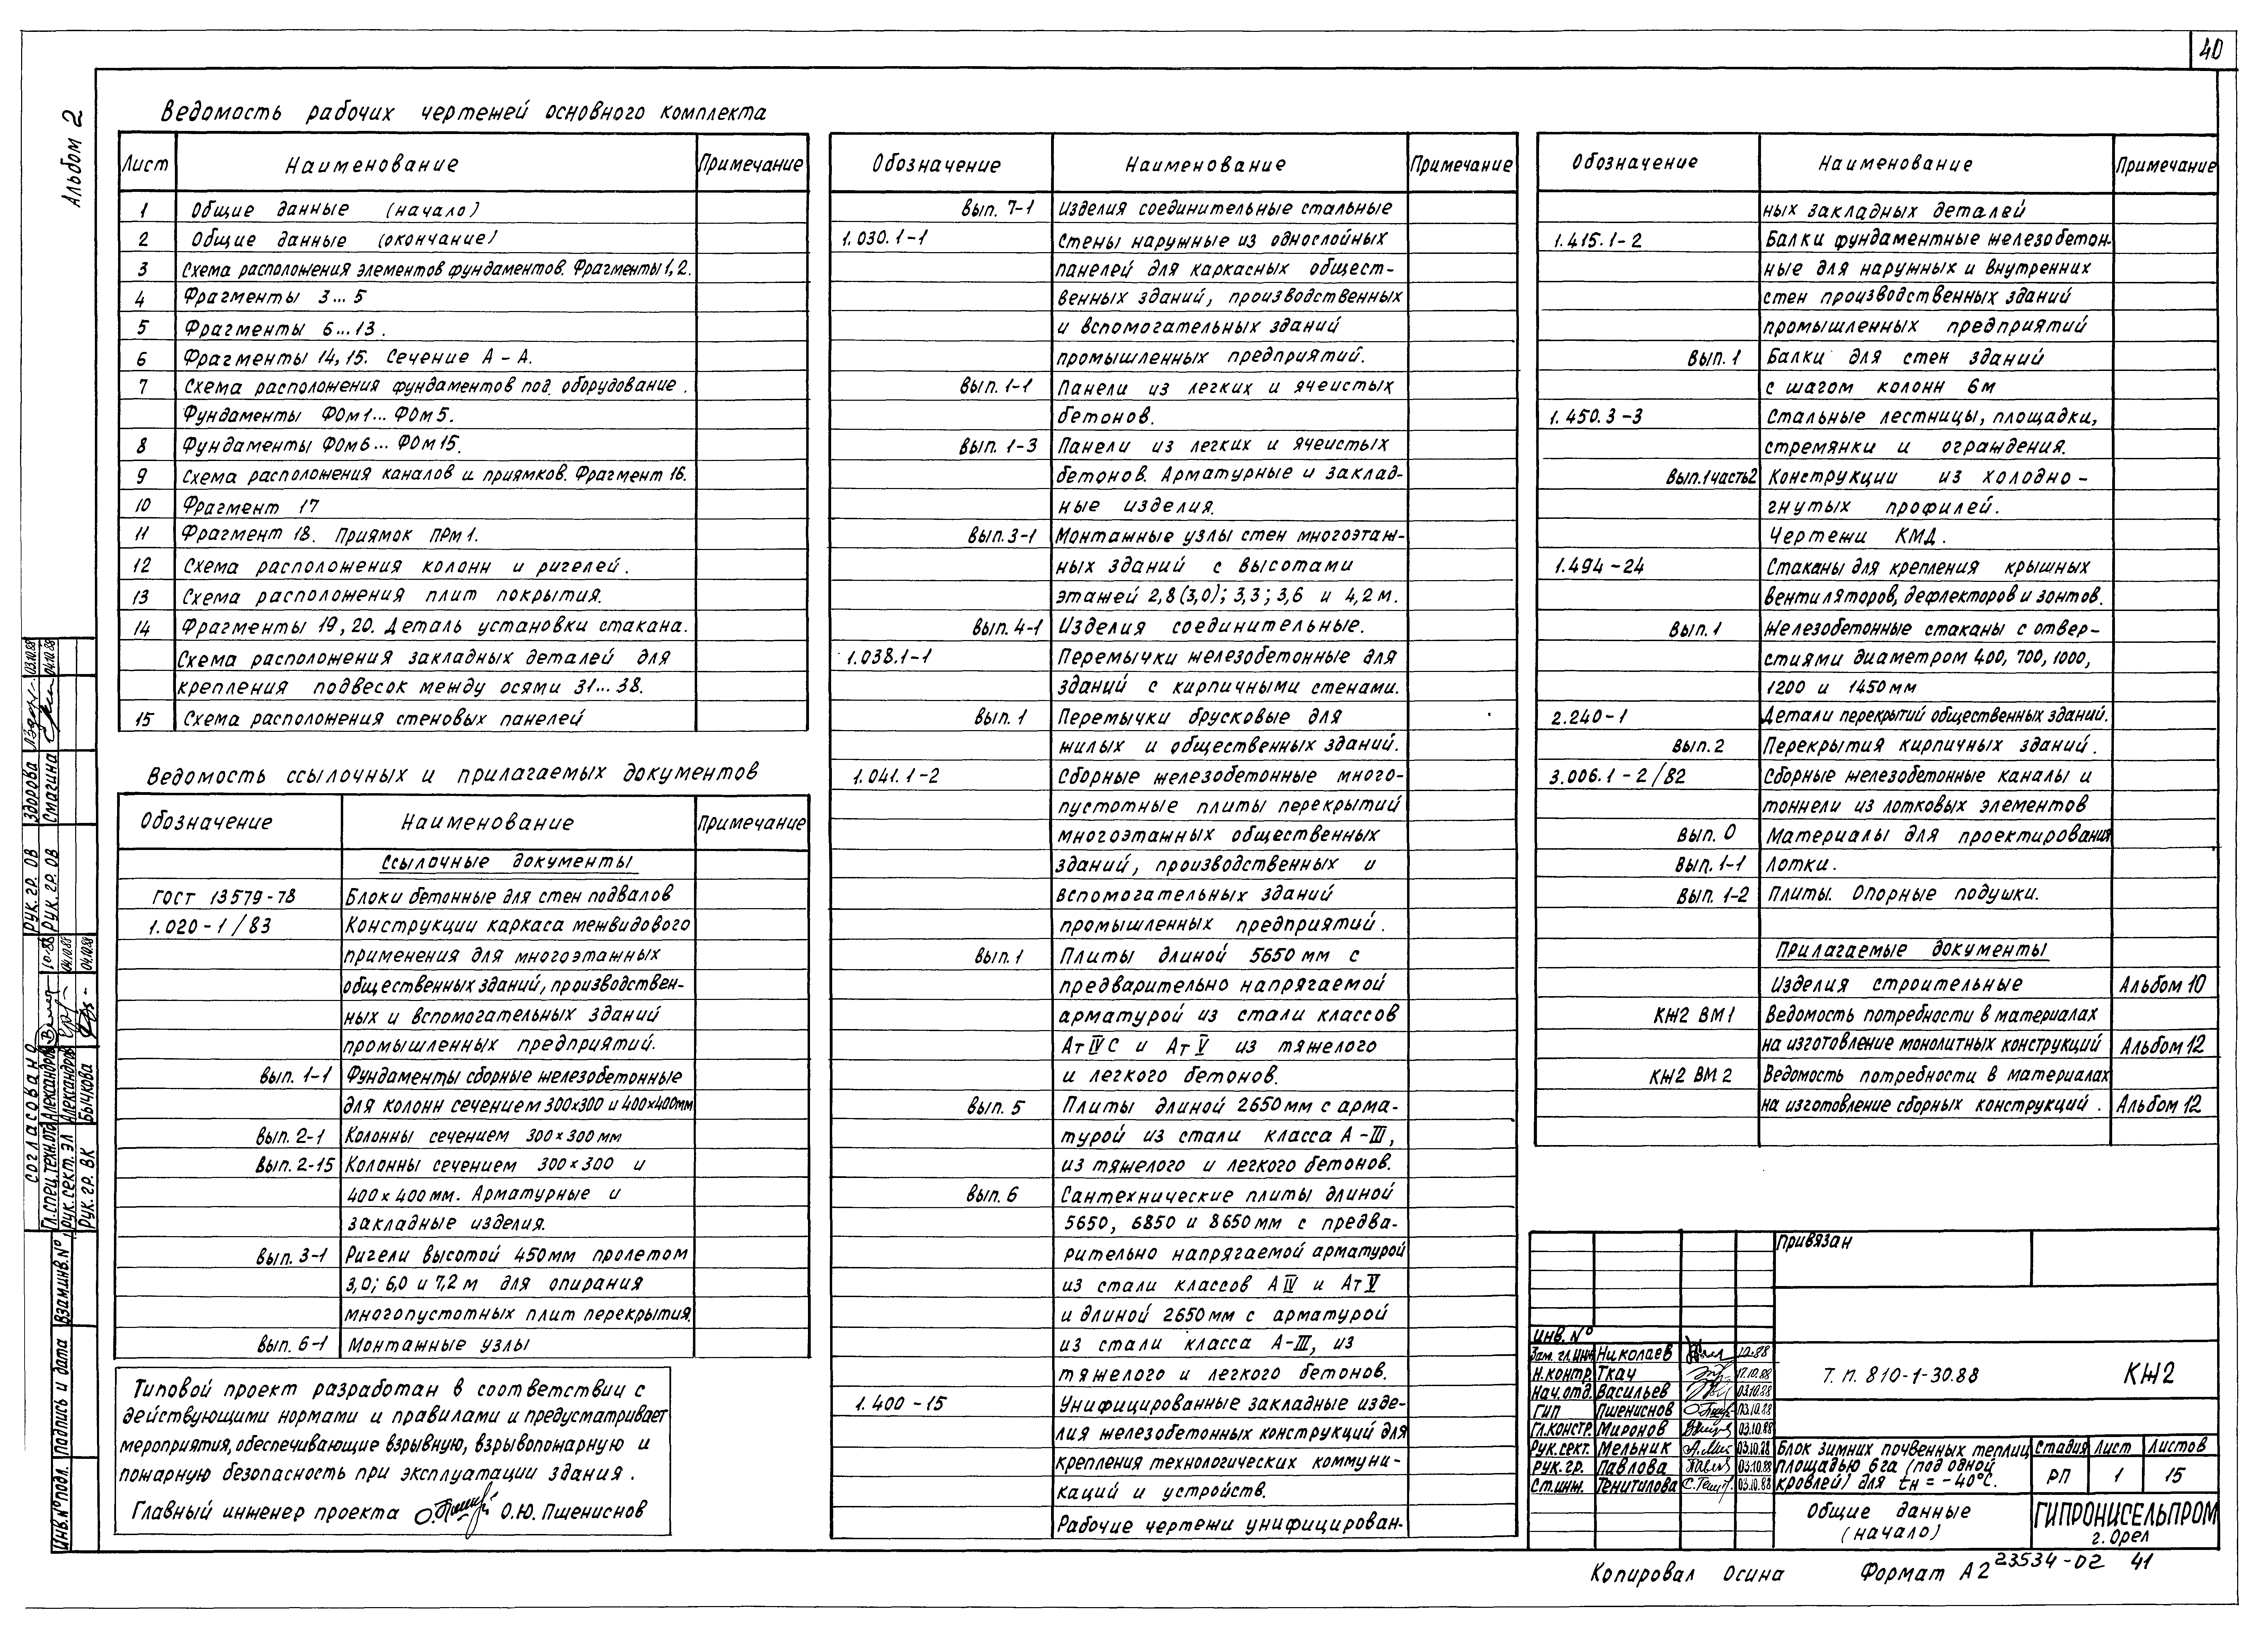 40
Альбом 2
Ведомость рабочих чертежей основного комплекта
Лист Наименование Примечание
1 Общие данные (начало)
2 Общие данные (окончание)
3 Схема расположения элементов фундаментов. Фрагменты 1, 2.
4 Фрагменты 3...5
5 Фрагменты 6...13.
6 Фрагменты 14, 15. Сечение А-А.
7 Схема расположения фундаментов под оборудование.
Фундаменты ФОм1...ФОм5.
8 Фундаменты ФОм6...ФОм15.
9 Схема расположения каналов и приямков. Фрагмент 16.
10 Фрагмент 17
11 Фрагмент 18. Приямок ПРм1.
12 Схема расположения колонн и ригелей.
13 Схема расположения плит покрытия.
14 Фрагменты 19, 20. Деталь установки стакана.
Схема расположения закладных деталей для
крепления подвесок между осями 31...38.
15 Схема расположения стеновых панелей
Ведомость ссылочных и прилагаемых документов
Обозначение Наименование Примечание
Ссылочные документы
ГОСТ 13579-78 Блоки бетонные для стен подвалов
1.020-1/83 Конструкции каркаса межвидового
применения для многоэтажных
общественных зданий, производствен-
ных и вспомогательных зданий
промышленных предприятий.
Вып. 1-1 Фундаменты сборные железобетонные
для колонн сечением 300х300 и 400х400мм
Вып. 2-1 Колонны сечением 300×300мм
Вып. 2-15 Колонны сечением 300×300 и
400×400мм. Арматурные и
закладные изделия.
Вып. 3-1 Ригели высотой 450мм пролетом
3,0; 6,0 и 7,2м для опирания
многопустотных плит перекрытия.
Вып. 6-1 Монтажные узлы
Типовой проект разработан в соответствии с
действующими нормами и правилами и предусматривает
мероприятия, обеспечивающие взрывную, взрывопожарную и
пожарную безопасность при эксплуатации здания.
Главный инженер проекта О.Ю. Пшениснов
Обозначение Наименование Примечание
Вып. 7-1 Изделия соединительные стальные
1.030.1-1 Стены наружные из однослойных
панелей для каркасных общест-
венных зданий, производственных
и вспомогательных зданий
промышленных предприятий.
Вып. 1-1 Панели из легких и ячеистых
бетонов.
Вып. 1-3 Панели из легких и ячеистых
бетонов. Арматурные и заклад-
ные изделия.
Вып. 3-1 Монтажные узлы стен многоэтаж-
ных зданий с высотами
этажей 2,8(3,0); 3,3; 3,6 и 4,2м.
Вып. 4-1 Изделия соединительные.
1.038.1-1 Перемычки железобетонные для
зданий с кирпичными стенами.
Вып. 1 Перемычки брусковые для
жилых и общественных зданий.
1.041.1-2 Сборные железобетонные много-
пустотные плиты перекрытий
многоэтажных общественных
зданий, производственных и
вспомогательных зданий
промышленных предприятий.
Вып. 1 Плиты длиной 5650мм с
предварительно напрягаемой
арматурой из стали классов
Ат IV С и Ат V из тяжелого
и легкого бетонов.
Вып. 5 Плиты длиной 2650мм с арма-
турой из стали класса А-III,
из тяжелого и легкого бетонов.
Вып. 6 Сантехнические плиты длиной
5650, 6850 и 8650мм с предва-
рительно напрягаемой арматурой
из стали классов А IV и Ат V
и длиной 2650мм с арматурой
из стали класса А-III, из
тяжелого и легкого бетонов.
1.400-15 Унифицированные закладные изде-
лия железобетонных конструкций для
крепления технологических коммуни-
каций и устройств.
Рабочие чертежи унифицирован-
Обозначение Наименование Примечание
ных закладных деталей
1.415.1-2 Балки фундаментные железобетон-
ные для наружных и внутренних
стен производственных зданий
промышленных предприятий
Вып. 1 Балки для стен зданий
с шагом колонн 6м
1.450.3-3 Стальные лестницы, площадки,
стремянки и ограждения.
Вып.1часть2 Конструкции из холодно-
гнутых профилей.
Чертежи КМД.
1.494-24 Стаканы для крепления крышных
вентиляторов, дефлекторов и зонтов.
Вып. 1 Железобетонные стаканы с отвер-
стиями диаметром 400, 700, 1000,
1200 и 1450мм
2.240-1 Детали перекрытий общественных зданий.
Вып. 2 Перекрытия кирпичных зданий.
3.006.1-2/82 Сборные железобетонные каналы и
тоннели из лотковых элементов
Вып. 0 Материалы для проектирования
Вып. 1-1 Лотки.
Вып. 1-2 Плиты. Опорные подушки.
Прилагаемые документы
Изделия строительные Альбом 10
КЖ2 ВМ1 Ведомость потребности в материалах
на изготовление монолитных конструкций Альбом 12
КЖ2 ВМ2 Ведомость потребности в материалах
на изготовление сборных конструкций. Альбом 12
Привязан
Инв. №
Зам. гл. инж Николаев 10.88
Н.контр. Ткач 17.10.88
Нач. отд. Васильев 03.10.88
ГИП Пшениснов 03.10.88
Гл.констр. Миронов 03.10.88
Рук. сект. Мельник 03.10.88
Рук. гр. Павлова 03.10.88
Ст. инж. Тенитилова 03.10.88
Т.п. 810-1-30.88 КЖ2
Блок зимних почвенных теплиц
площадью 6га (под одной
кровлей) для tн=-40°С.
Стадия Лист Листов
РП 1 15
Общие данные
(начало)
ГИПРОНИСЕЛЬПРОМ
г. Орел
Копировал Осина Формат А2 23534-02 41
Согласовано
Рук. гр. ОВ Здорова 03.10.88
Рук. гр. ОВ Смагина 04.10.88
Гл. спец. техн. отд Александров 10.88
Рук. сект. ЭЛ Александров 04.10.88
Рук. гр. ВК Бычкова 04.10.88
Взам.инв.№
Подпись и дата
Инв.№подл.